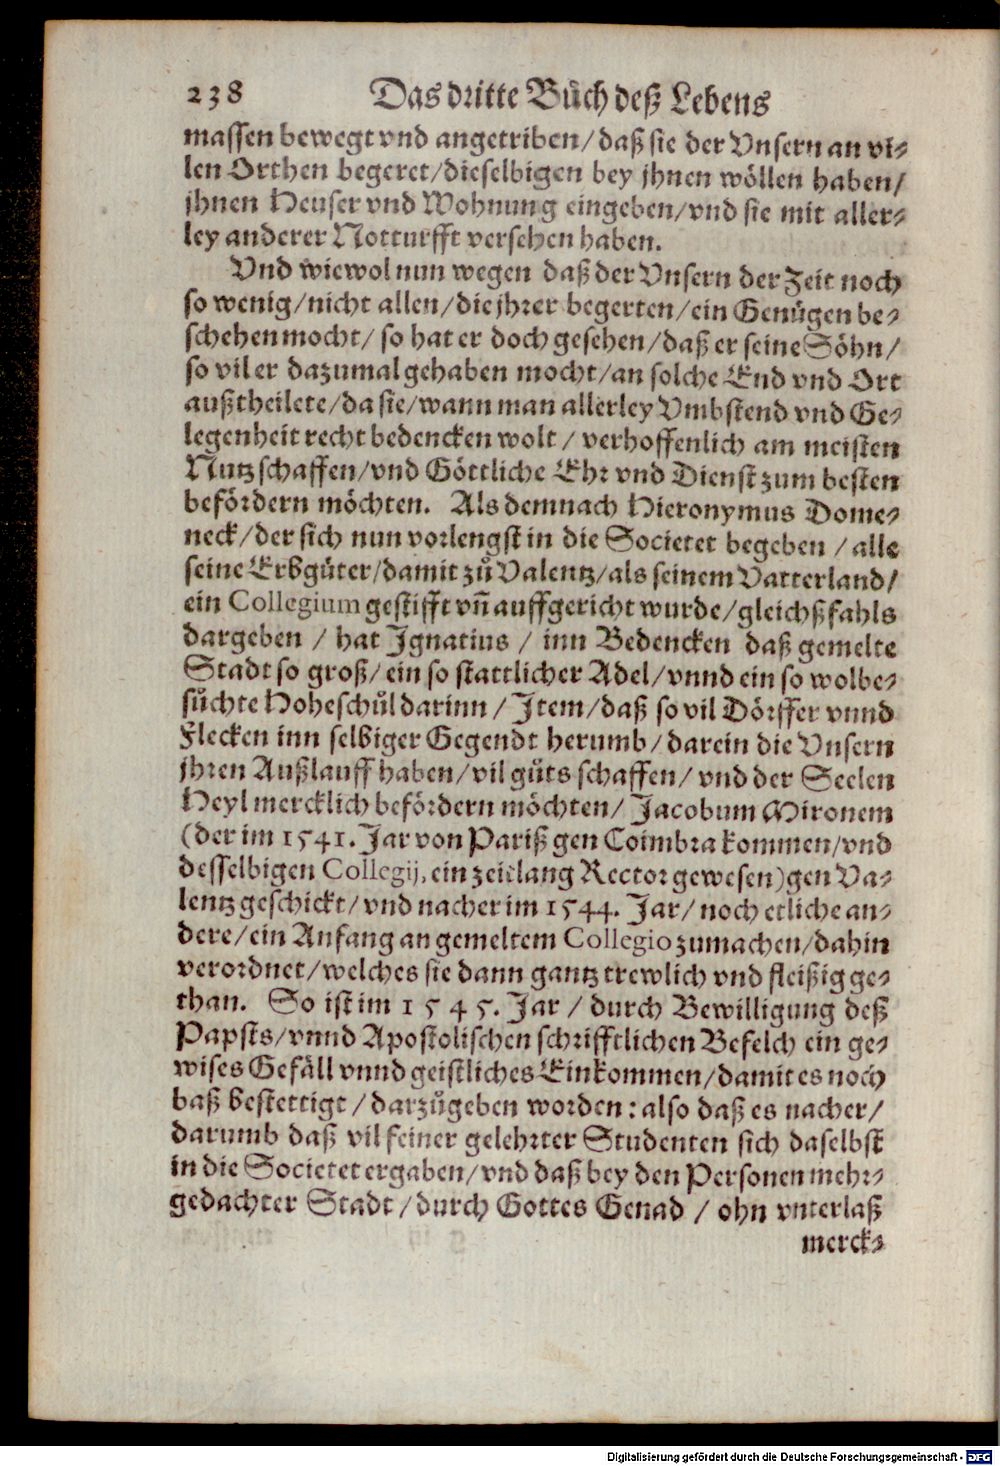 238 Das dritte Bůch deß Lebens
massen bewegt vnd angetriben/daß sie der Vnsern an vi⸗
len Orthen begeret/dieselbigen bey jhnen wöllen haben/
jhnen Heuser vnd Wohnung eingeben/vnd sie mit aller⸗
ley anderer Notturfft versehen haben.
Vnd wiewol nun wegen daß der Vnsern der Zeit noch
so wenig/nicht allen/die jhrer begerten/ein Genügen be⸗
schehen mocht/ so hat er doch gesehen/daß er seine Söhn/
so vil er dazumal gehaben mocht/an solche End vnd Ort
außtheilete/da sie/wann man allerley Vmbstend vnd Ge⸗
legenheit recht bedencken wolt / verhoffenlich am meisten
Nutz schaffen/vnd Göttliche Ehr vnd Dienst zum besten
befördern möchten. Als demnach Hieronymus Dome⸗
neck/der sich nun vorlengst in die Societet begeben / alle
seine Erbgüter/damit zů Valentz/als seinem Vatterland/
ein Collegium gestifft vñ auffgericht wurde/gleichßfahls
dargeben / hat Ignatius / inn Bedencken daß gemelte
Stadt so groß/ein so stattlicher Adel/vnnd ein so wolbe⸗
sůchte Hoheschůl darinn / Item/daß so vil Dörffer vnnd
Flecken inn selbiger Gegendt herumb/darein die Vnsern
jhren Außlauff haben/vil gůts schaffen/ vnd der Seelen
Heyl mercklich befördern möchten/ Jacobum Mironem
(der im 1541. Jar von Pariß gen Coimbra kommen/vnd
desselbigen Collegij, ein zeitlang Rector gewesen)gen Va⸗
lentz geschickt/vnd nacher im 1544. Jar/ noch etliche an⸗
dere/ein Anfang an gemeltem Collegio zumachen/dahin
verordnet/welches sie dann gantz trewlich vnd fleißig ge⸗
than. So ist im 1545. Jar / durch Bewilligung deß
Papsts/vnnd Apostolischen schrifftlichen Befelch ein ge⸗
wises Gefäll vnnd geistliches Einkommen/damit es noch
baß bestettigt / darzůgeben worden: also daß es nacher/
darumb daß vil feiner gelehrter Studenten sich daselbst
in die Societet ergaben/vnd daß bey den Personen mehr⸗
gedachter Stadt /durch Gottes Genad / ohn vnterlaß
merck⸗
Digitalisierung gefördert durch die Deutsche Forschungsgemeinschaft - DFG